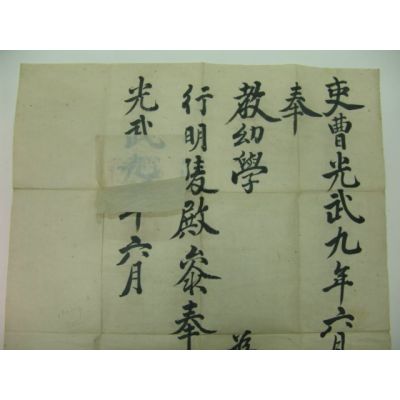 吏曹光武九年六月
奉
教幼學
行明陵殿叅奉
光武年六月